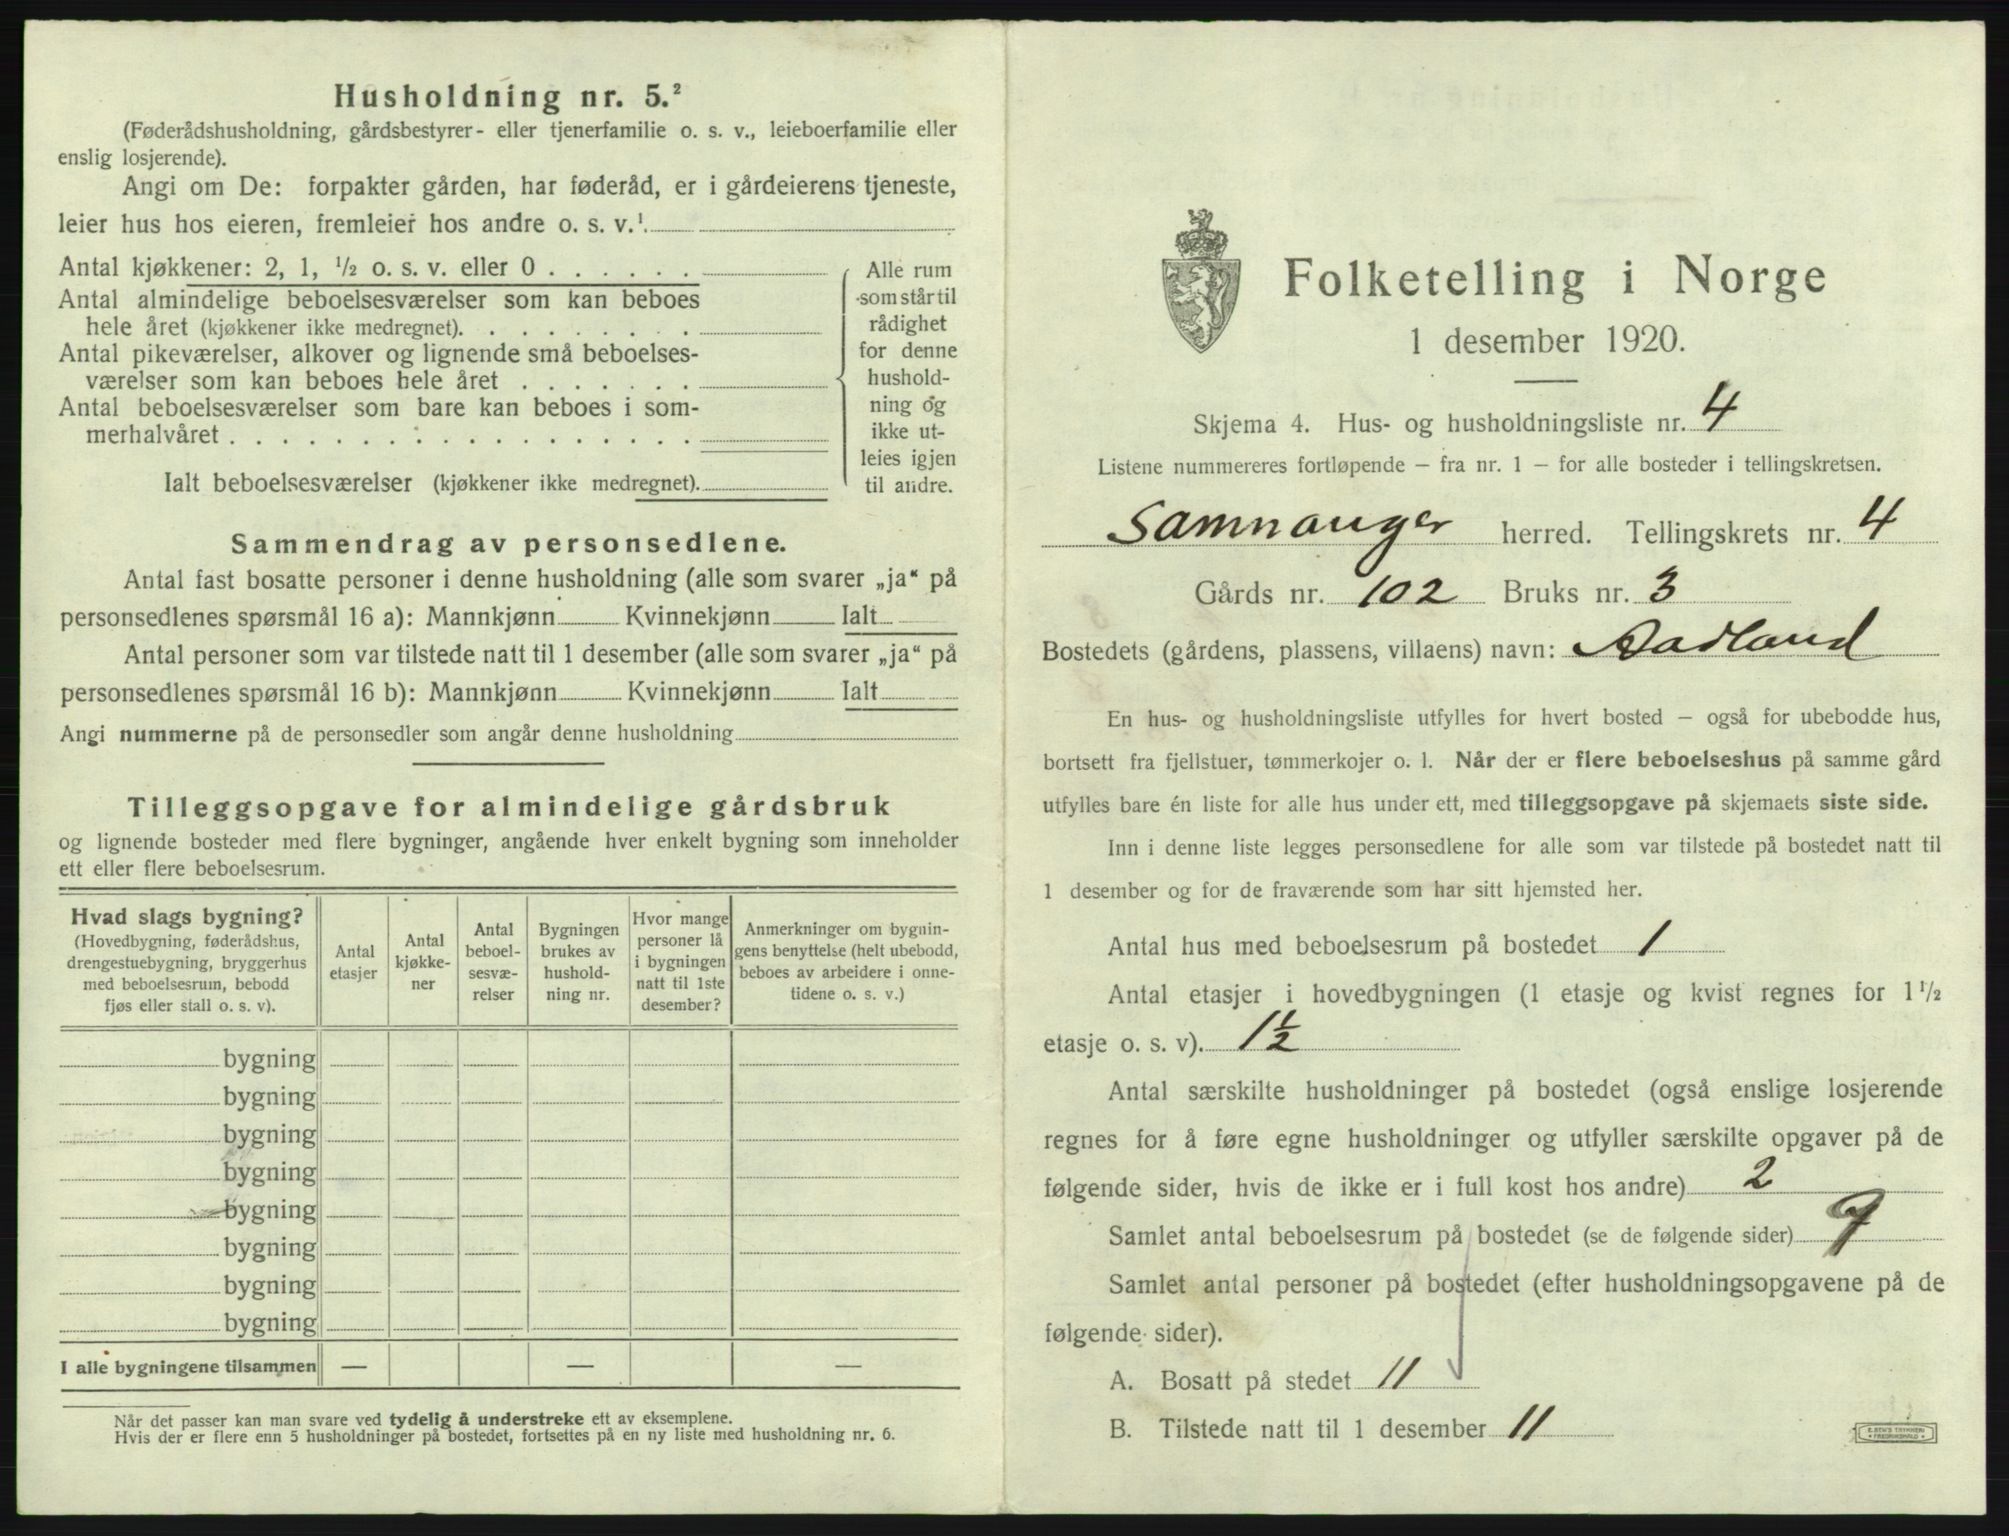 Husholdning nr. 5.²
(Føderådshusholdning, gårdsbestyrer- eller tjenerfamilie o. s. v., leieboerfamilie eller
enslig losjerende).
Angi om De: forpakter gården, har føderåd, er i gårdeierens tjeneste,
leier hus hos eieren, fremleier hos andre o. s. v.¹.
Antal kjøkkener: 2, 1, ½ o. s. v. eller 0 . . . . . .
Antal almindelige beboelsesværelser som kan beboes
hele året (kjøkkener ikke medregnet). . . . . . . . .
Antal pikeværelser, alkover og lignende små beboelses-
værelser som kan beboes hele året . . . . . . .
Antal beboelsesværelser som bare kan beboes i som-
merhalvåret . . . . . . . . . . . . . . . . . .
Ialt beboelsesværelser (kjøkkener ikke medregnet).
Alle rum
som står til
rådighet
for denne
hushold-
ning og
ikke ut-
leies igjen
til andre.
Sammendrag av personsedlene.
Antal fast bosatte personer i denne husholdning (alle som svarer „ja“ på
personsedlenes spørsmål 16 a): Mannkjønn Kvinnekjønn Ialt
Antal personer som var tilstede natt til 1 desember (alle som svarer „ja“ på
personsedlenes spørsmål 16 b): Mannkjønn Kvinnekjønn Ialt
Angi nummerne på de personsedler som angår denne husholdning
Tilleggsopgave for almindelige gårdsbruk
og lignende bosteder med flere bygninger, angående hver enkelt bygning som inneholder
ett eller flere beboelsesrum.
Hvad slags bygning?
(Hovedbygning, føderådshus,
drengestuebygning, bryggerhus
med beboelsesrum, bebodd
fjøs eller stall o. s. v).
Antal
etasjer
Antal
kjøkke-
ner
Antal
beboel-
sesvæ-
relser
Bygningen
brukes av
hushold-
ning nr.
Hvor mange
personer lå
i bygningen
natt til 1ste
desember?
Anmerkninger om bygnin-
gens benyttelse (helt ubebodd,
beboes av arbeidere i onne-
tidene o. s. v.)
bygning
bygning
bygning
bygning
bygning
bygning
bygning
bygning
I alle bygningene tilsammen — — —
Når det passer kan man svare ved tydelig å understreke ett av eksemplene.
Hvis der er flere enn 5 husholdninger på bostedet, fortsettes på en ny liste med husholdning nr. 6.
Folketelling i Norge
1 desember 1920.
Skjema 4. Hus- og husholdningsliste nr. 4
Listene nummereres fortløpende – fra nr. 1 – for alle bosteder i tellingskretsen.
Samnanger herred. Tellingskrets nr. 4
Gårds nr. 102 Bruks nr. 3
Bostedets (gårdens, plassens, villaens) navn: Aadland
En hus- og husholdningsliste utfylles for hvert bosted – også for ubebodde hus,
bortsett fra fjellstuer, tømmerkojer o. l. Når der er flere beboelseshus på samme gård
utfylles bare én liste for alle hus under ett, med tilleggsopgave på skjemaets siste side.
Inn i denne liste legges personsedlene for alle som var tilstede på bostedet natt til
1 desember og for de fraværende som har sitt hjemsted her.
Antal hus med beboelsesrum på bostedet 1
Antal etasjer i hovedbygningen (1 etasje og kvist regnes for 1½
etasje o. s. v). 1½
Antal særskilte husholdninger på bostedet (også enslige losjerende
regnes for å føre egne husholdninger og utfyller særskilte opgaver på de
følgende sider, hvis de ikke er i full kost hos andre) 2
Samlet antal beboelsesrum på bostedet (se de følgende sider)
Samlet antal personer på bostedet (efter husholdningsopgavene på de
følgende sider).
A. Bosatt på stedet 11
B. Tilstede natt til 1 desember 11